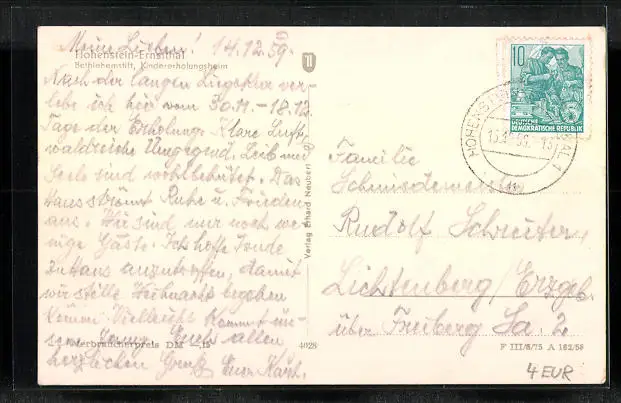 Meine Lieben! 14.12.59.
Hohenstein-Ernstthal
Bethlehemstift, Kindererholungsheim
Nach der langen ver-
lebe ich hier vom 30.11.–18.12.
Tage der Erholung. Klare Luft,
waldreiche Umgegend. Leib und
Seele sind wohlbehütet. Das
Haus strömt Ruhe u. Frieden
aus. Wir sind nur noch we-
nige Gäste. Ich hoffe
zu Haus anzutreffen, damit
wir stille Weihnacht begehen
können. Vielleicht kommt
Euch allen
herzlichen Gruß Eure
Verbraucherpreis DM -,15
4028
Verlag Erhard Neubert
10
DEUTSCHE
DEMOKRATISCHE REPUBLIK
HOHENSTEIN-ERNSTTHAL 1
Familie
Schmiedemeister
Rudolf Schreiter
Lichtenberg / Erzgeb.
über Freiberg Sa. 2
F III/8/75 A 162/58
4 EUR